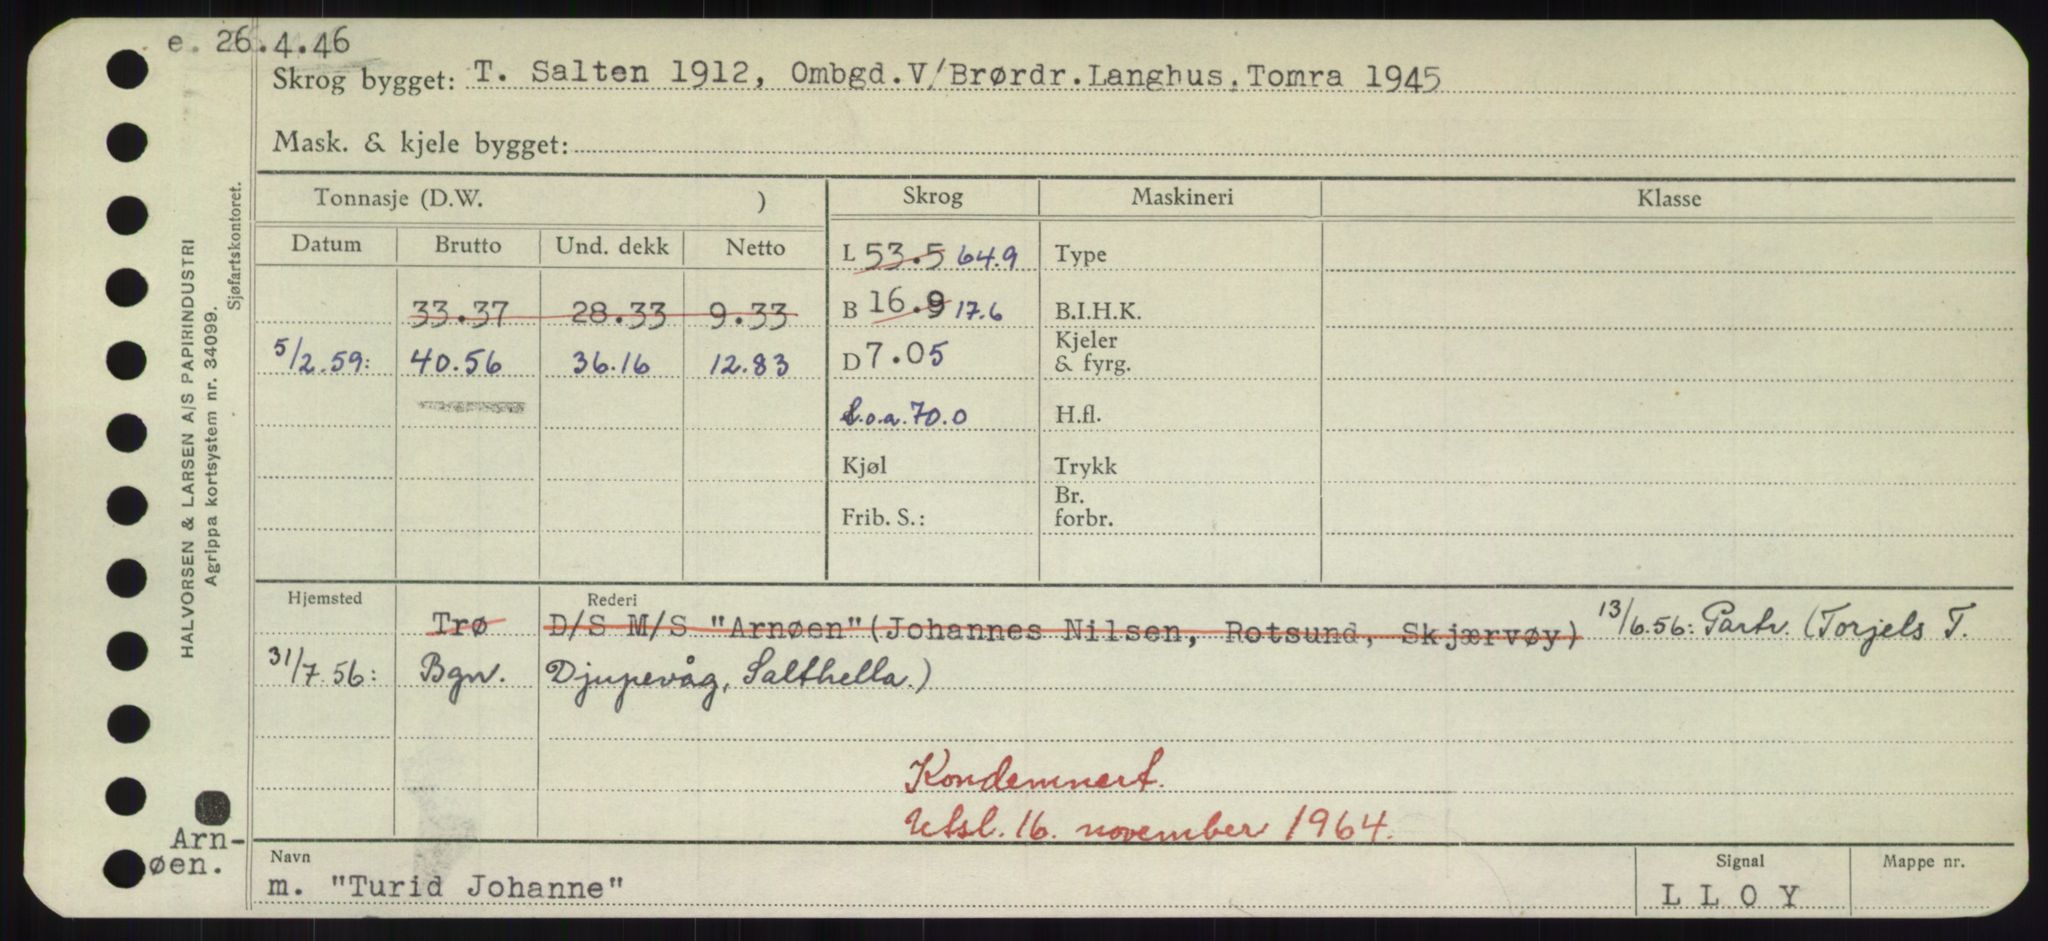 e. 26.4.46
Skrog bygget: T. Salten 1912, Ombgd.V/Brørdr.Langhus,Tomra 1945
Mask. & kjele bygget:
HALVORSEN & LARSEN A/S PAPIRINDUSTRI
Agrippa kortsystem nr. 34099.
Sjøfartskontoret.
Tonnasje (D.W. ) Skrog Maskineri Klasse
Datum Brutto Und. dekk Netto
L 53.5 64.9 Type
33.37 28.33 9.33 B 16.9 17.6 B.I.H.K.
5/2.59: 40.56 36.16 12.83 D 7.05 Kjeler
& fyrg.
L.o.a. 70.0 H.fl.
Kjøl Trykk
Frib. S.: Br.
forbr.
Hjemsted Rederi
Trø D/S M/S "Arnøen"(Johannes Nilsen, Rotsund, Skjærvøy) 13/6.56: Partr. (Torjels T.
31/7.56: Bgn. Djupevåg, Salthella.)
Kondemnert.
Utsl. 16. november 1964.
Arn-
øen.
Navn Signal Mappe nr.
m. "Turid Johanne" L L O Y